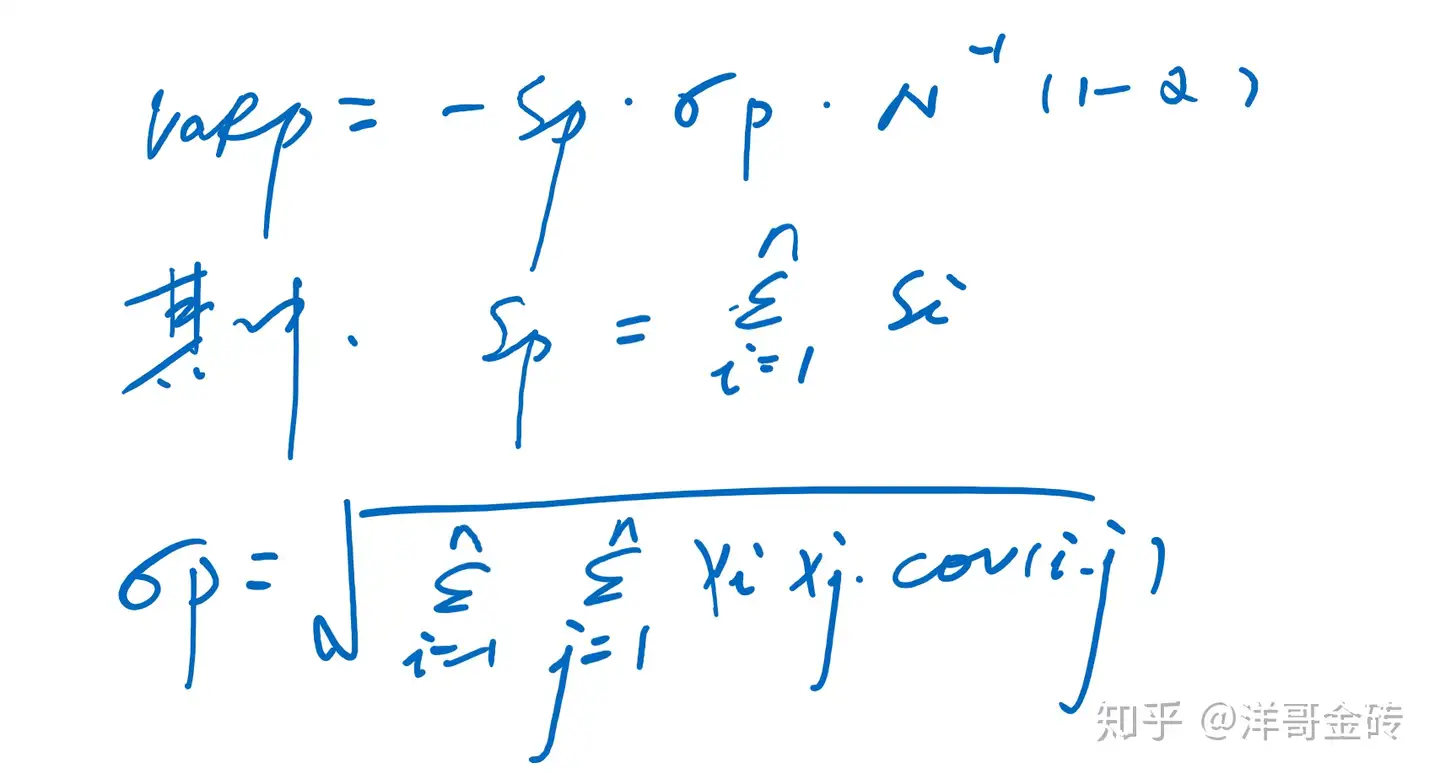 VaRp = - Sp · σp · N⁻¹ (1-α)
其中. Sp = Σ_{i=1}^{n} Si
σp = √(Σ_{i=1}^{n} Σ_{j=1}^{n} Xi Xj · cov(i·j))
知乎 @洋哥金砖